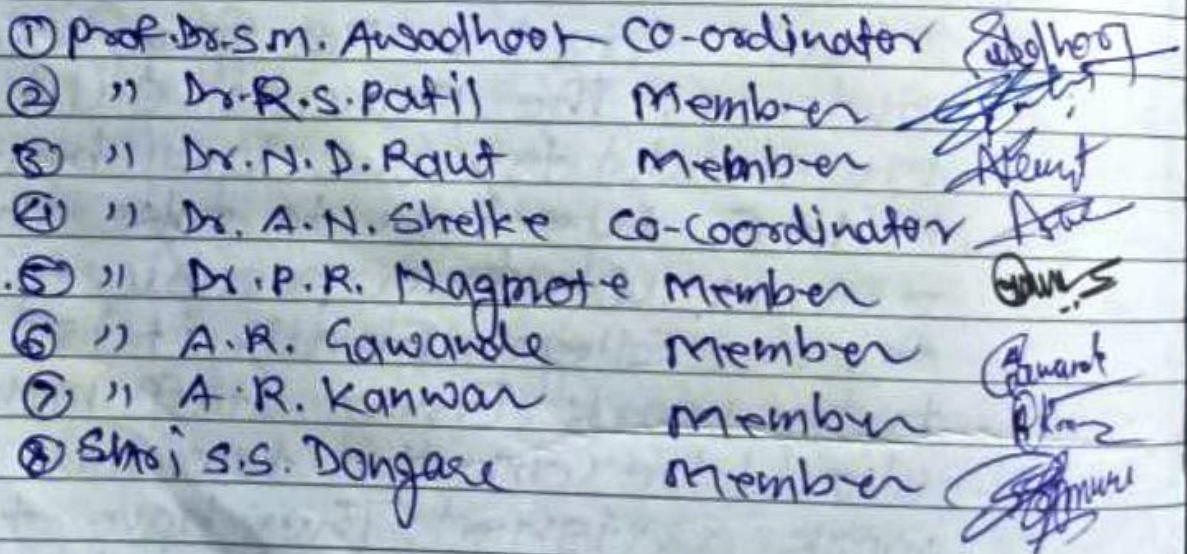 ① Prof. Dr. S.M. Awadhoot Co-ordinator
② " Dr. R.S. Patil Member
③ " Dr. N.D. Raut Member
④ " Dr. A.N. Shelke Co-coordinator
⑤ " Dr. P.R. Nagmote Member
⑥ " A.R. Gawande Member
⑦ " A.R. Kanwar Member
⑧ Shri S.S. Dongare Member